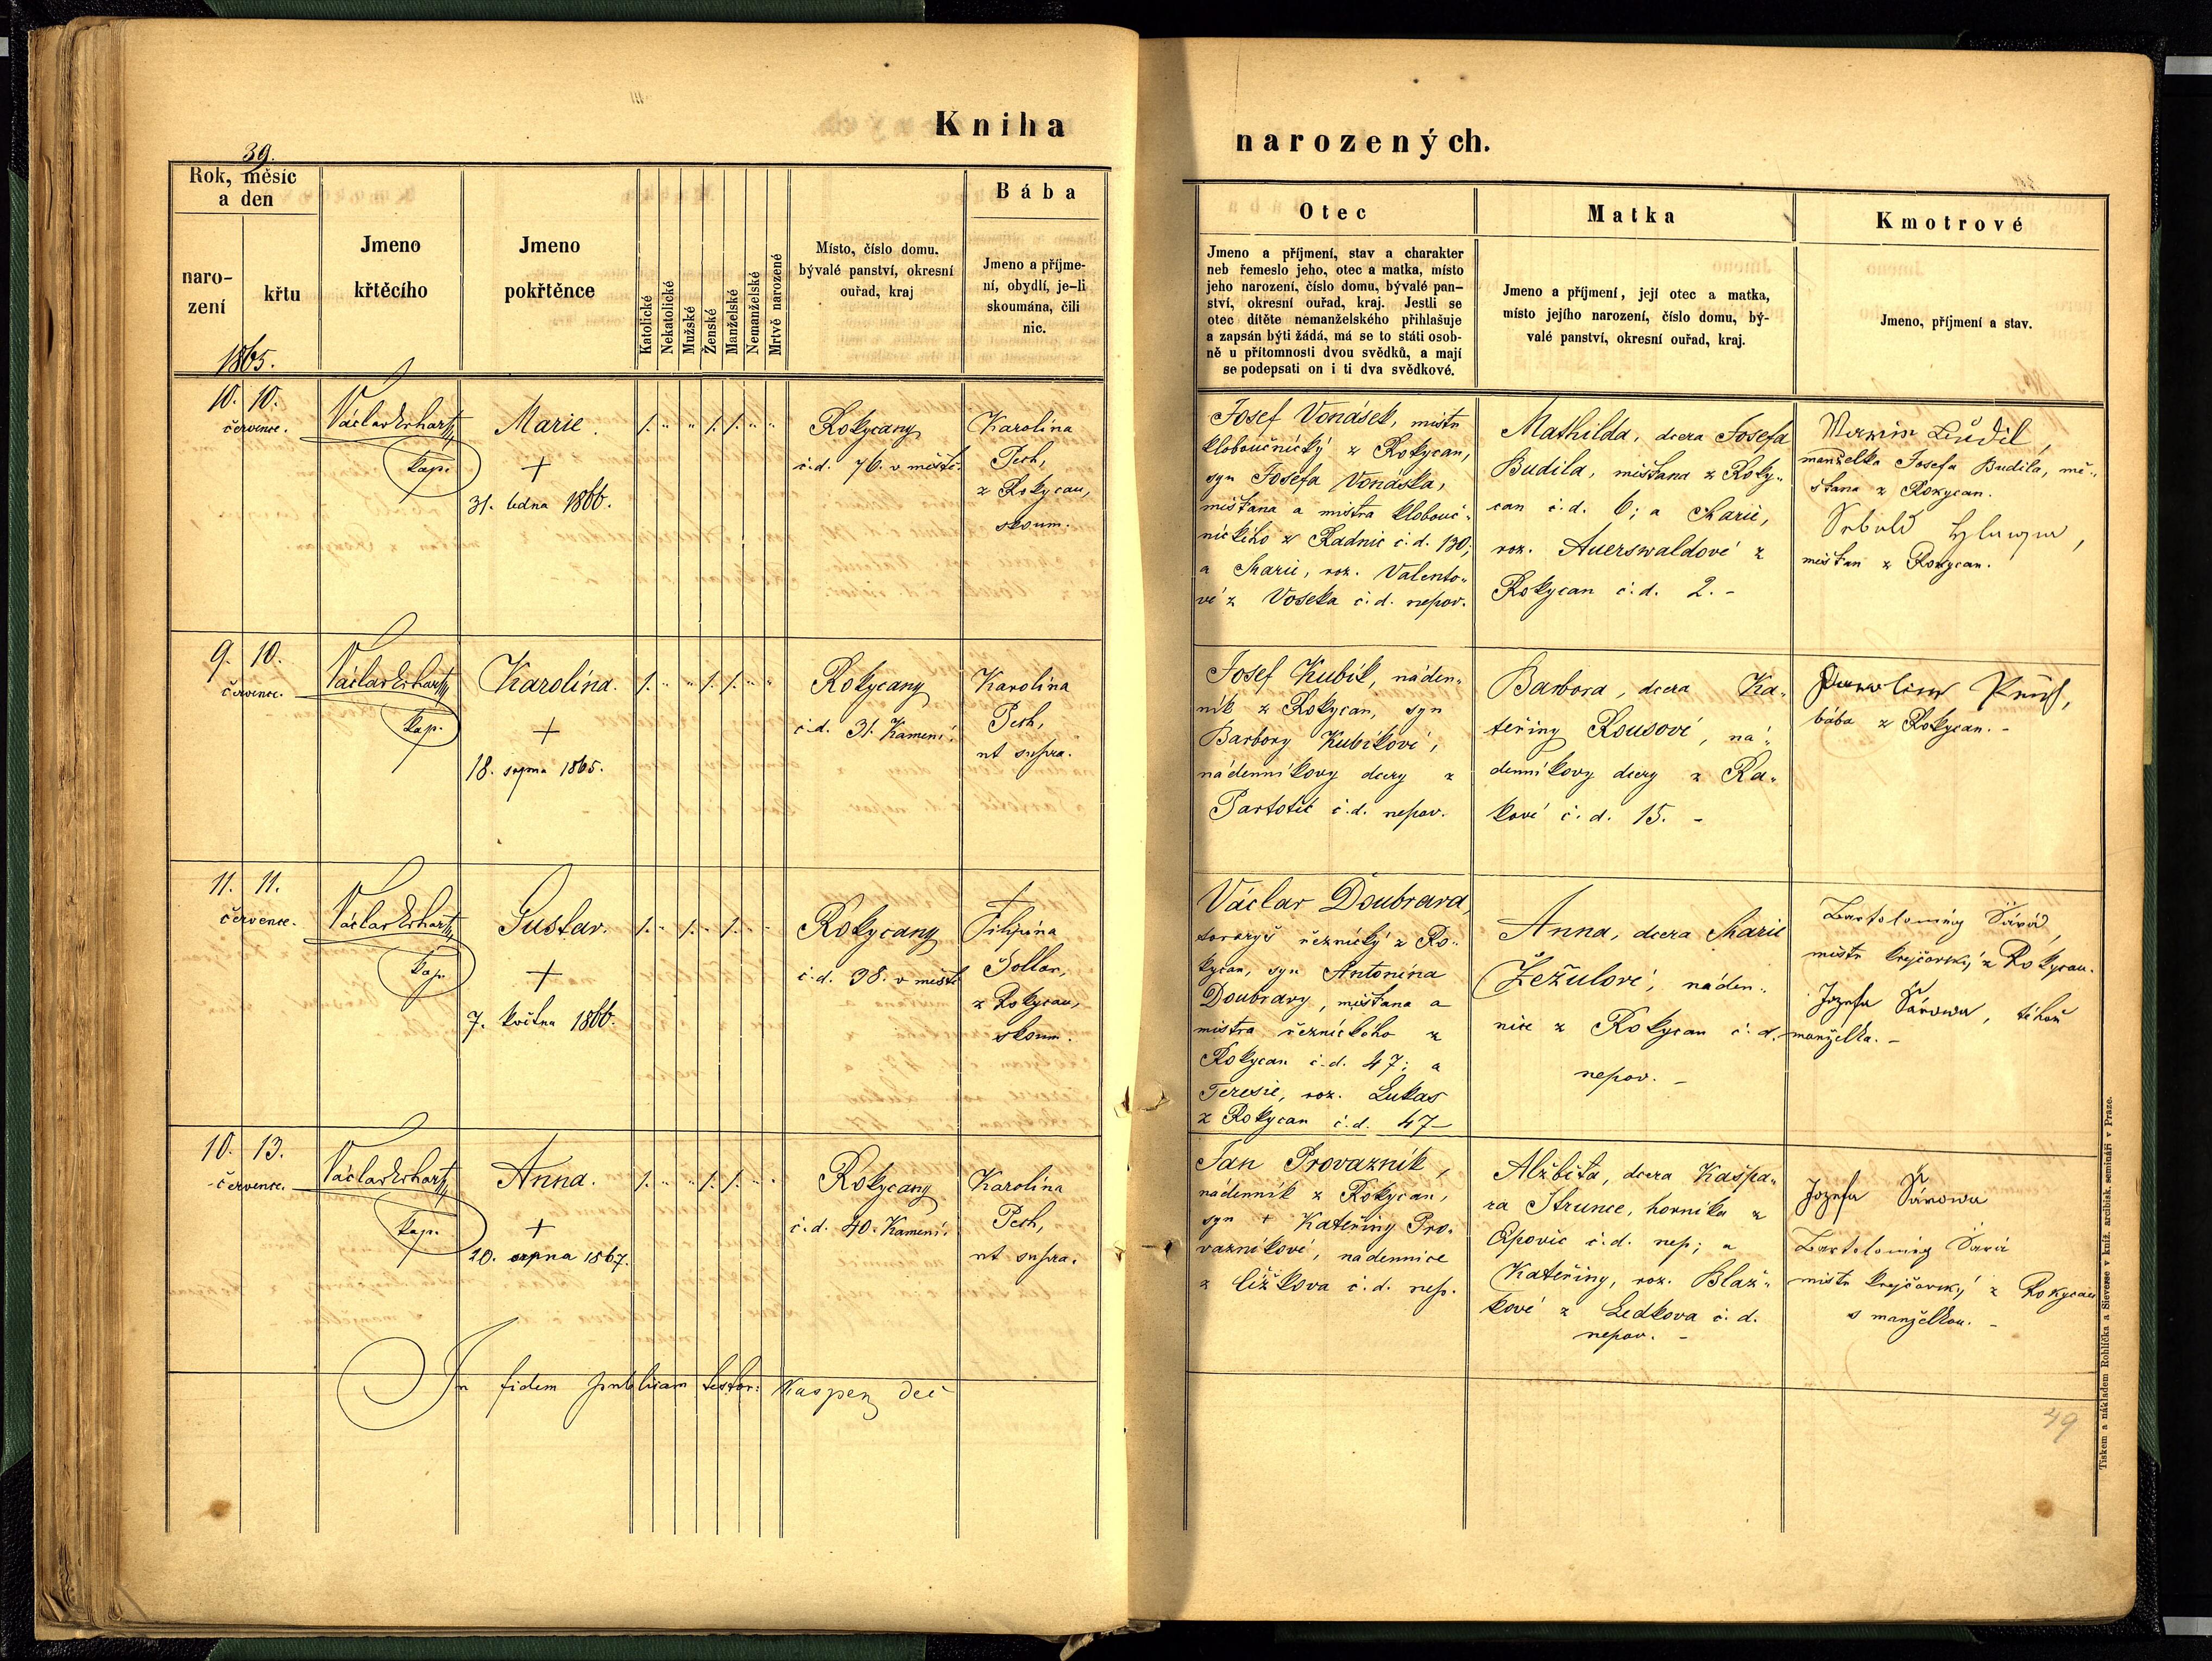 Kniha
narozených.
39.
Rok, měsíc
a den
naro-
zení
křtu
1865.
Jmeno
křtěcího
Jmeno
pokřtěnce
Katolické
Nekatolické
Mužské
Ženské
Manželské
Nemanželské
Mrtvě narozené
Místo, číslo domu.
bývalé panství, okresní
ouřad, kraj
Bába
Jmeno a příjme-
ní, obydlí, je-li
skoumána, čili
nic.
Otec
Jmeno a příjmení, stav a charakter
neb řemeslo jeho, otec a matka, místo
jeho narození, číslo domu, bývalé pan-
ství, okresní ouřad, kraj. Jestli se
otec dítěte nemanželského přihlašuje
a zapsán býti žádá, má se to státi osob-
ně u přítomnosti dvou svědků, a mají
se podepsati on i ti dva svědkové.
Matka
Jmeno a příjmení, její otec a matka,
místo jejího narození, číslo domu, bý-
valé panství, okresní ouřad, kraj.
Kmotrové
Jmeno, příjmení a stav.
10. 10.
července.
Václav Erhart
kap.
Marie.
+
31. ledna 1866.
1. " " 1. 1. " "
Rokycany
č.d. 76. v městě.
Karolina
Pech,
z Rokycan,
skoum.
Josef Vonásek, mistr
kloboučnický z Rokycan,
syn Josefa Vonáska,
měšťana a mistra klobouč-
nického z Radnic č.d. 130;
a Marie, roz. Valento-
vé z Voseka č.d. nepov.
Mathilda, dcera Josefa
Budila, měšťana z Roky-
can č.d. 6; a Marie,
roz. Auerswaldové z
Rokycan č.d. 2. -
Budil,
manželka Josefa Budila, mě-
šťana z Rokycan.
měšťan z Rokycan.
9. 10.
července.
Václav Erhart
kap.
Karolina.
+
18. srpna 1865.
1. " " 1. 1. " "
Rokycany
č.d. 31. Kamení.
Karolina
Pech,
ut supra.
Josef Kubík, náden-
ník z Rokycan, syn
Barbory Kubíkové,
nádenníkovy dcery z
č.d. nepov.
Barbora, dcera Ka-
teřiny Rousové, ná-
denníkovy dcery z Ra-
kové č.d. 15. -
bába z Rokycan. -
11. 11.
července.
Václav Erhart
kap.
Gustav.
+
7. května 1866.
1. " 1. " 1. " "
Rokycany
č.d. 38. v městě
Filipína
z Rokycan,
skoum.
Václav Doubrava,
tovaryš řeznický z Ro-
kycan, syn Antonína
Doubravy, měšťana a
mistra řeznického z
Rokycan č.d. 47; a
Teresie, roz. Lukas
z Rokycan č.d. 47
Anna, dcera Marie
Žežulové, náden-
nice z Rokycan č.d.
nepov. -
Bartolomněj
mistr krejčovský z Rokycan.
Jozefa Šárowa, téhož
manželka. -
10. 13.
července.
Václav Erhart
kap.
Anna.
+
20. srpna 1867.
1. " " 1. 1. " "
Rokycany
č.d. 40. Kamení.
Karolina
Pech,
ut supra.
Jan Provazník,
nádenník z Rokycan,
syn + Kateřiny Pro-
vazníkové, nádennice
z Čížkova č.d. nep.
Alžběta, dcera Kašpa-
ra Strunce, horníka z
Ejpovic č.d. nep; a
Kateřiny, roz. Blaž-
kové z Ledkova č.d.
nepov. -
Jozefa Šárowa
Bartoloměj
mistr krejčovský z Rokycan
s manželkou. -
In fidem publicam testor: Kasper děč
49
Tiskem a nákladem Rohlíčka a Sieverse v kníž. arcibisk. semináři v Praze.